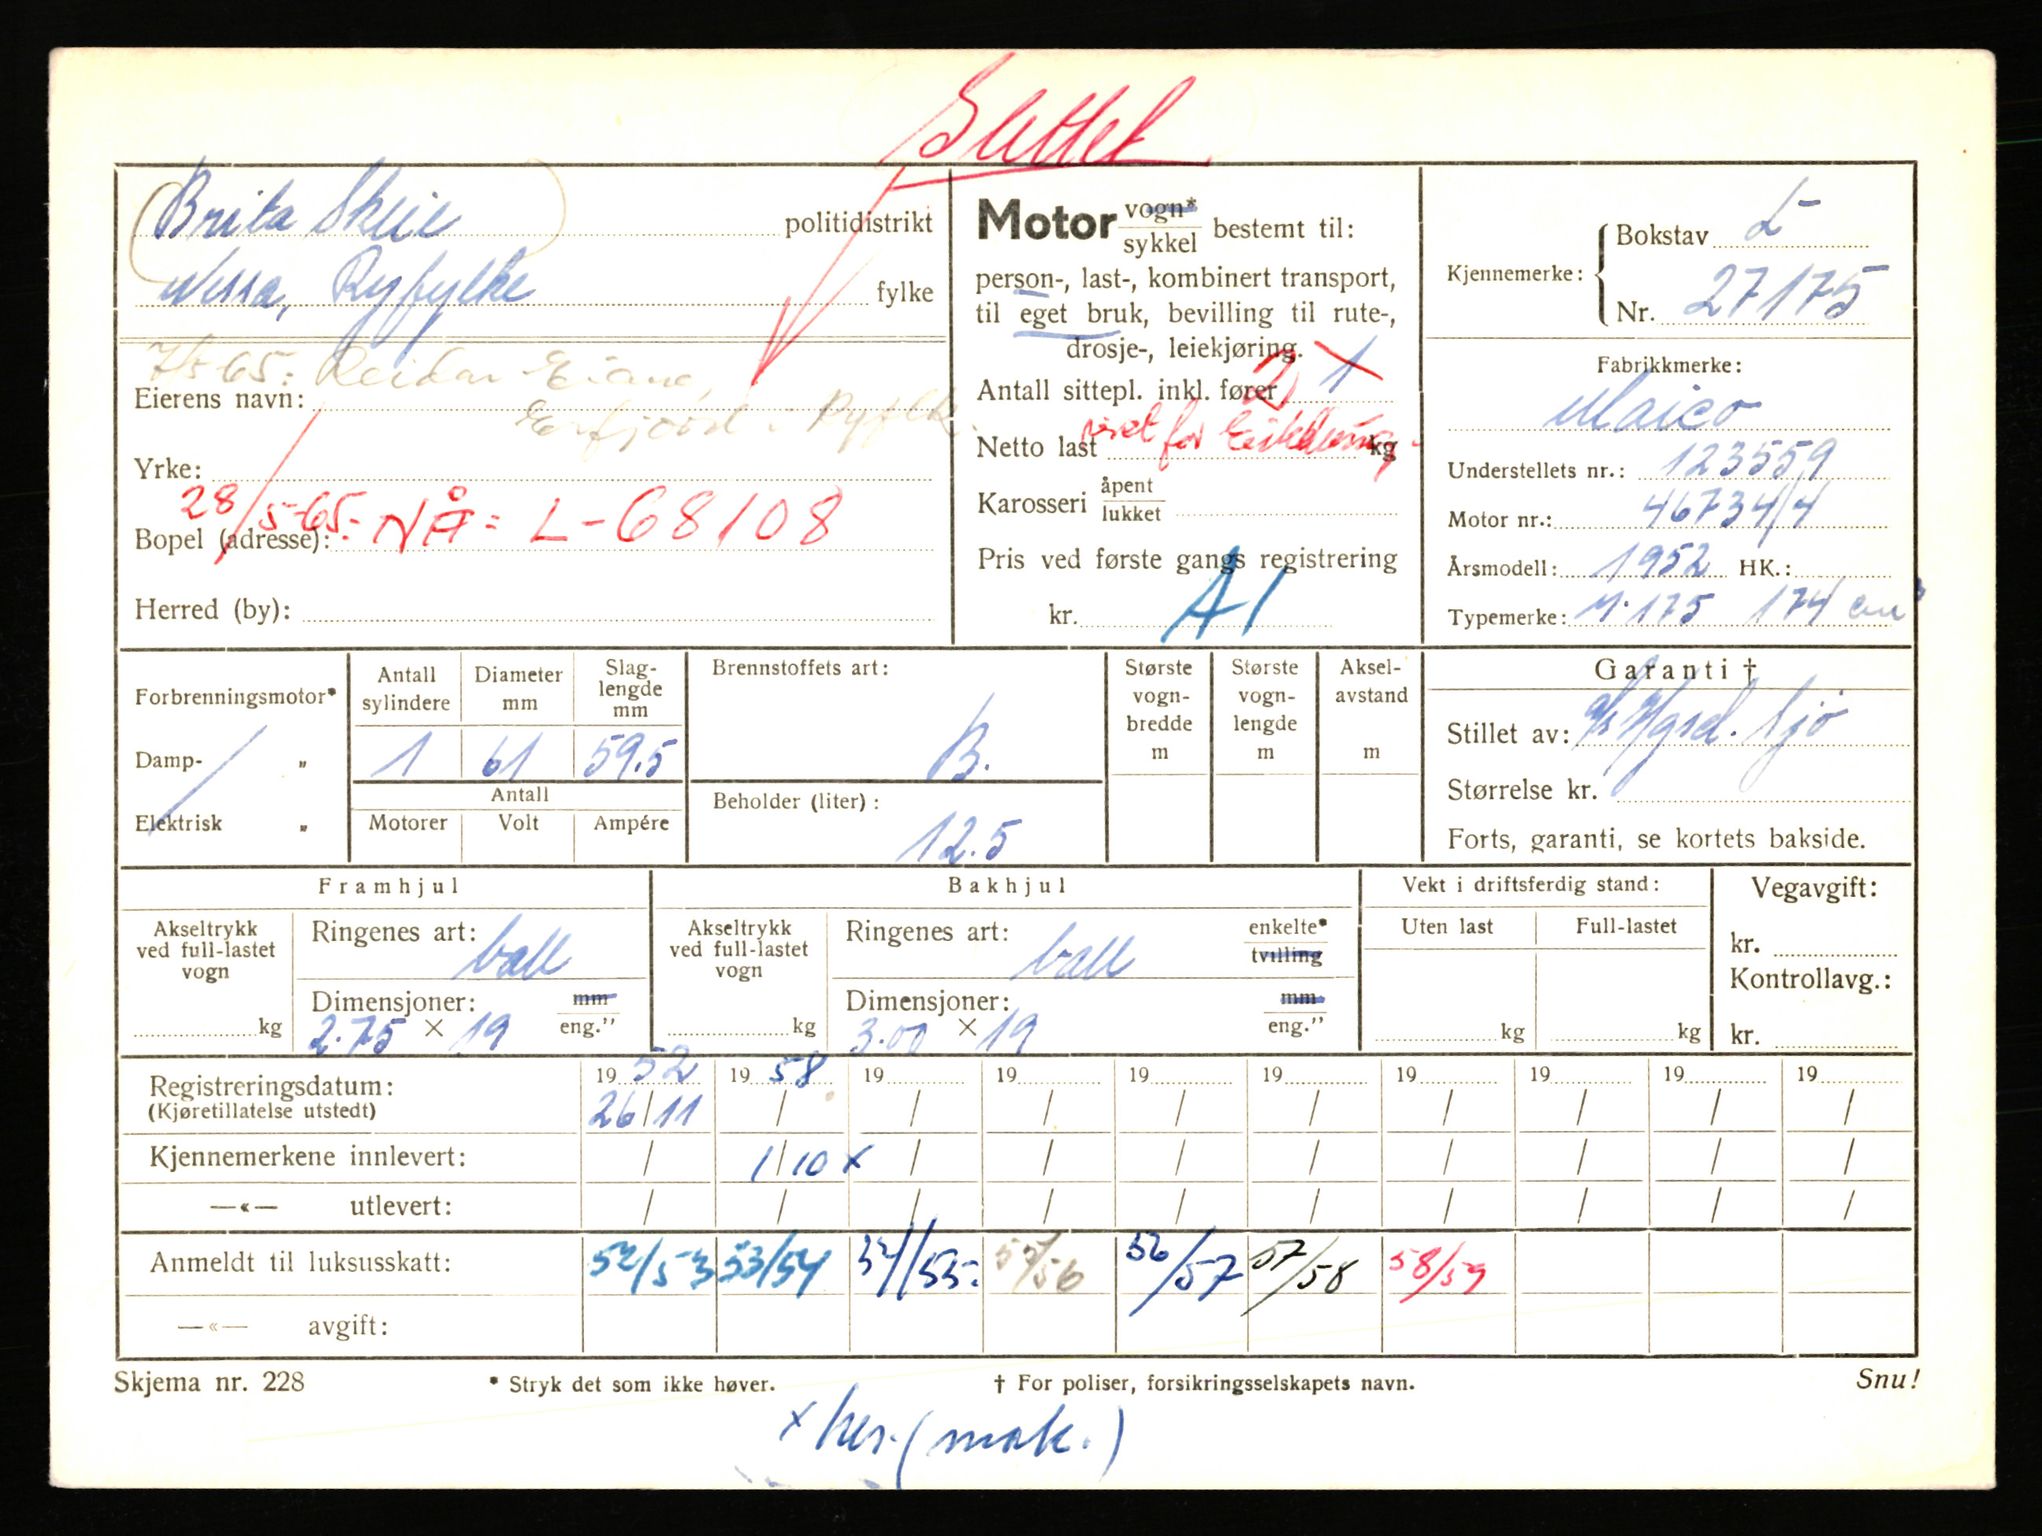 Slettet
Brita Skeie politidistrikt
Nessa, Ryfylke fylke
7/5-65: Reidar Eiane,
Eierens navn: Erfjord i Ryfylke
Yrke:
28/5-65.- NÅ: L-68108
Bopel (adresse):
Herred (by):
Motor vogn* sykkel bestemt til:
person-, last-, kombinert transport,
til eget bruk, bevilling til rute-,
drosje-, leiekjøring.
Antall sittepl. inkl. fører 2) 1
Netto last for kg
Karosseri åpent lukket
Pris ved første gangs registrering
kr. A1
Kjennemerke: Bokstav L-
Nr. 27175
Fabrikkmerke:
Maico
Understellets nr.: 123559
Motor nr.: 46734/4
Årsmodell: 1952 HK.:
Typemerke: M.175 174 cm³
Forbrenningsmotor*
Damp- „
Elektrisk „
Antall sylindere Diameter mm Slag-lengde mm
1 61 59.5
Antall
Motorer Volt Ampére
Brennstoffets art:
B.
Beholder (liter):
12.5
Største vogn-bredde m
Største vogn-lengde m
Aksel-avstand m
Garanti †
Stillet av: Sjø
Størrelse kr.
Forts, garanti, se kortets bakside.
Framhjul
Akseltrykk ved full-lastet vogn
kg
Ringenes art: ball
Dimensjoner: mm
2.75 × 19 eng.”
Bakhjul
Akseltrykk ved full-lastet vogn
kg
Ringenes art: ball enkelte* tvilling
Dimensjoner: mm
3.00 × 19 eng.”
Vekt i driftsferdig stand:
Uten last Full-lastet
kg kg
Vegavgift:
kr.
Kontrollavg.:
kr.
Registreringsdatum: 19 52 19 58 19 19 19 19 19 19 19 19
(Kjøretillatelse utstedt) 26/11 / / / / / / / / /
Kjennemerkene innlevert: / 1/10 x / / / / / / / /
—«— utlevert: / / / / / / / / / /
Anmeldt til luksusskatt: 52/53 53/54 54/55. 55/56 56/57 57/58 58/59
—«— avgift:
Skjema nr. 228 * Stryk det som ikke høver. † For poliser, forsikringsselskapets navn. Snu!
x her. (mak.)